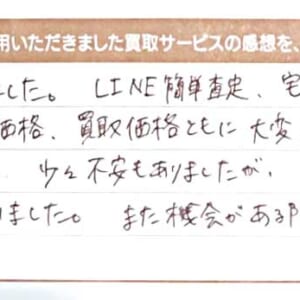 用いただきました買取サービスの感想を、
した。 LINE簡単査定、宅
価格、買取価格ともに大変
少々不安もありましたが、
りました。 また機会がある時